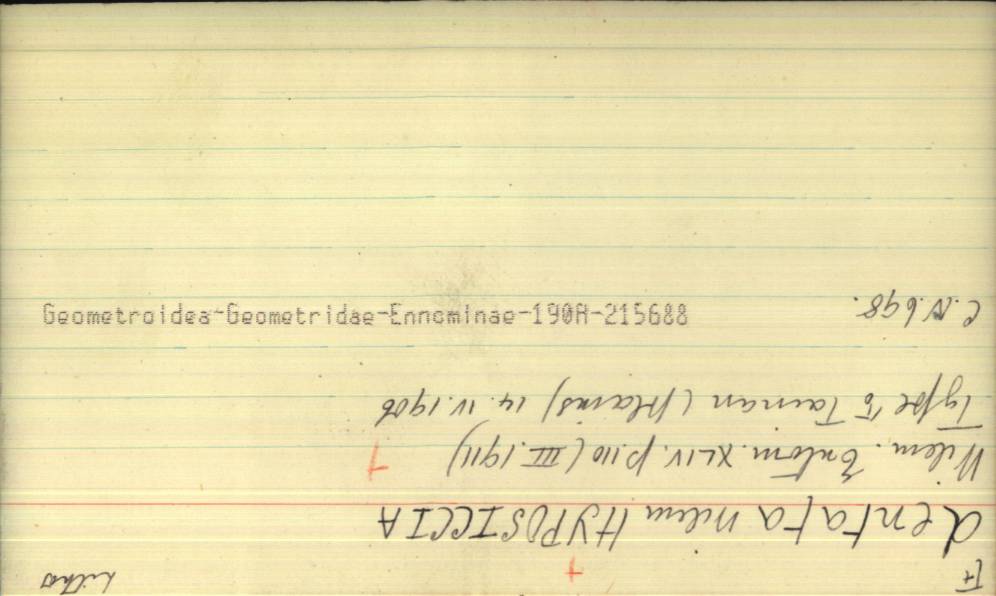 Lithos
dentata Wilem HYPOSICCIA
Wilem. Entom. XLIV. p.110 (III.1911)
Type ♂ Tainan (plains) 14.IV.1906
C.N.698.
Geometroidea-Geometridae-Ennominae-190A-215688